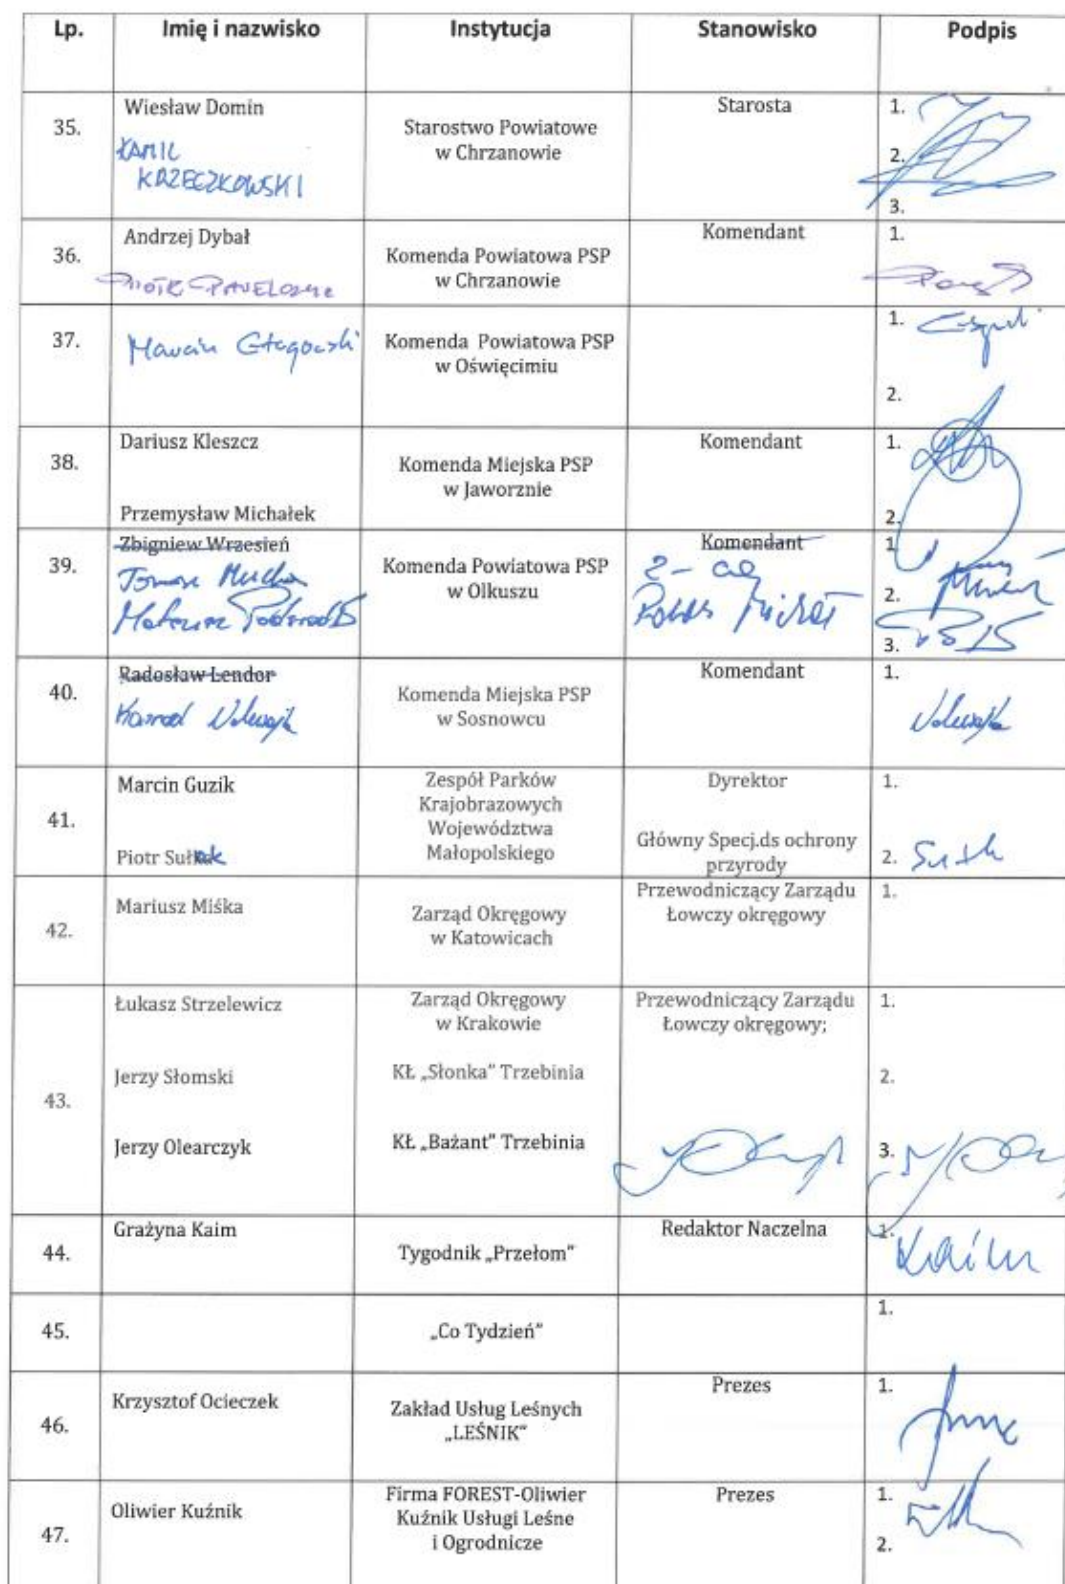 Lp. Imię i nazwisko Instytucja Stanowisko Podpis
35.
Wiesław Domin
KAMIL
KRZECZKOWSKI
Starostwo Powiatowe
w Chrzanowie
Starosta
1.
2.
3.
36.
Andrzej Dybał
Komenda Powiatowa PSP
w Chrzanowie
Komendant
1.
37.
Marcin Głogowski
Komenda Powiatowa PSP
w Oświęcimiu
1.
2.
38.
Dariusz Kleszcz
Przemysław Michałek
Komenda Miejska PSP
w Jaworznie
Komendant
1.
2.
39.
Zbigniew Wrzesień
Tomasz Mucha
Mateusz
Komenda Powiatowa PSP
w Olkuszu
Komendant
1.
2.
3.
40.
Radosław Lendor
Konrad
Komenda Miejska PSP
w Sosnowcu
Komendant
1.
41.
Marcin Guzik
Piotr Sułek
Zespół Parków
Krajobrazowych
Województwa
Małopolskiego
Dyrektor
Główny Specj.ds ochrony
przyrody
1.
2.
42.
Mariusz Miśka
Zarząd Okręgowy
w Katowicach
Przewodniczący Zarządu
Łowczy okręgowy
1.
43.
Łukasz Strzelewicz
Jerzy Słomski
Jerzy Olearczyk
Zarząd Okręgowy
w Krakowie
KŁ „Słonka” Trzebinia
KŁ „Bażant” Trzebinia
Przewodniczący Zarządu
Łowczy okręgowy;
1.
2.
3.
44.
Grażyna Kaim
Tygodnik „Przełom”
Redaktor Naczelna
1.
Kaim
45.
„Co Tydzień”
1.
46.
Krzysztof Ocieczek
Zakład Usług Leśnych
„LEŚNIK”
Prezes
1.
47.
Oliwier Kuźnik
Firma FOREST-Oliwier
Kuźnik Usługi Leśne
i Ogrodnicze
Prezes
1.
2.